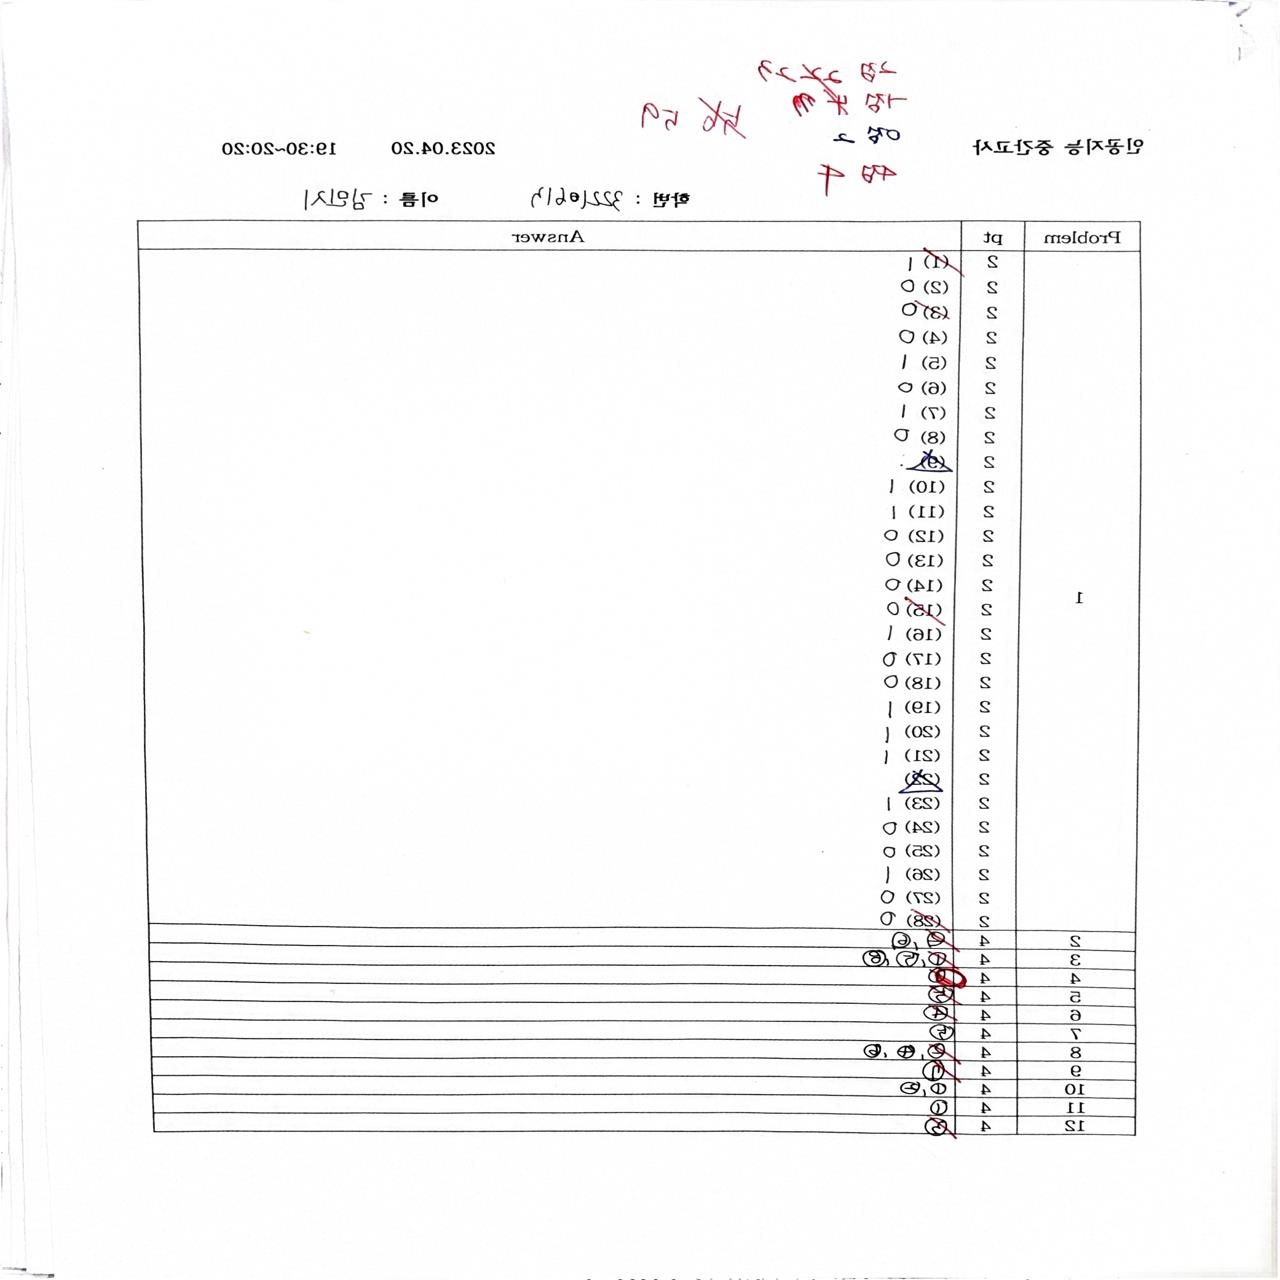 2점
1점
0점 2
4점 4
인공지능 중간고사 2023.04.20 19:30~20:20
학번 : 이름 : 김민지
Problem pt Answer
1
2 (1) 1
2 (2) 0
2 (3) 0
2 (4) 0
2 (5) 1
2 (6) 0
2 (7) 1
2 (8) 0
2 (9)
2 (10) 1
2 (11) 1
2 (12) 0
2 (13) 0
2 (14) 0
2 (15) 0
2 (16) 1
2 (17) 0
2 (18) 0
2 (19) 1
2 (20) 1
2 (21) 1
2 (22)
2 (23) 1
2 (24) 0
2 (25) 0
2 (26) 1
2 (27) 0
2 (28) 0
2 4 ⑥
3 4 ①, ⑤, ⑧
4 4
5 4
6 4 ④
7 4 ⑤
8 4 ④, ⑥
9 4
10 4 ①
11 4 ①
12 4 ③